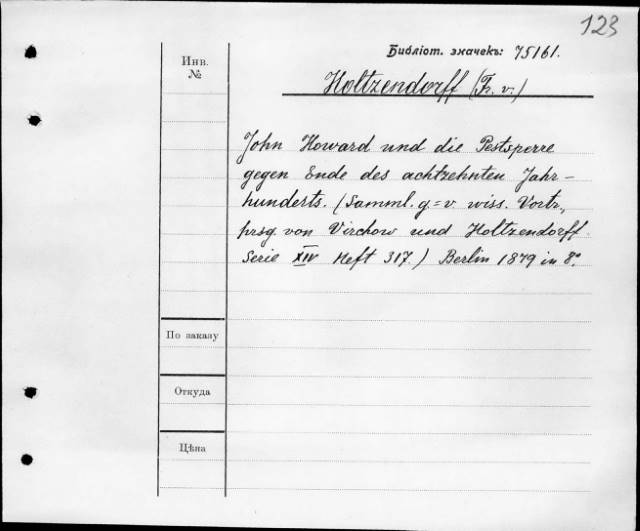 123
Библіот. значекъ: 75161.
Инв.
№
Holtzendorff (Fr. v.)
John Howard und die Pestsperre
gegen Ende des achtzehnten Jahr-
hunderts. (Samml. g=v. wiss. Vortr.,
hrsg. von Virchow und Holtzendorff.
Serie XIV Heft 317.) Berlin 1879 in 8°
По заказу
Откуда
Цѣна